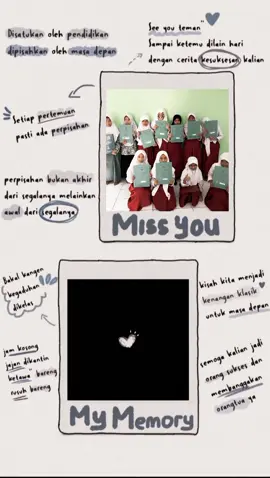 Disatukan oleh pendidikan
dipisahkan oleh masa depan
See you teman"
Sampai ketemu dilain hari
dengan cerita kesuksesan kalian
Setiap pertemuan
pasti ada perpisahan
perpisahan bukan akhir
dari segalanya melainkan
awal dari segalanya
Miss You
Bakal kangen
kegaduhan
dikelas
kisah kita menjadi
kenangan klasik
untuk masa depan
jam kosong
jajan dikantin
ketawa" bareng
rusuh bareng
semoga kalian jadi
orang sukses dan
membanggakan
orangtua ya
My Memory